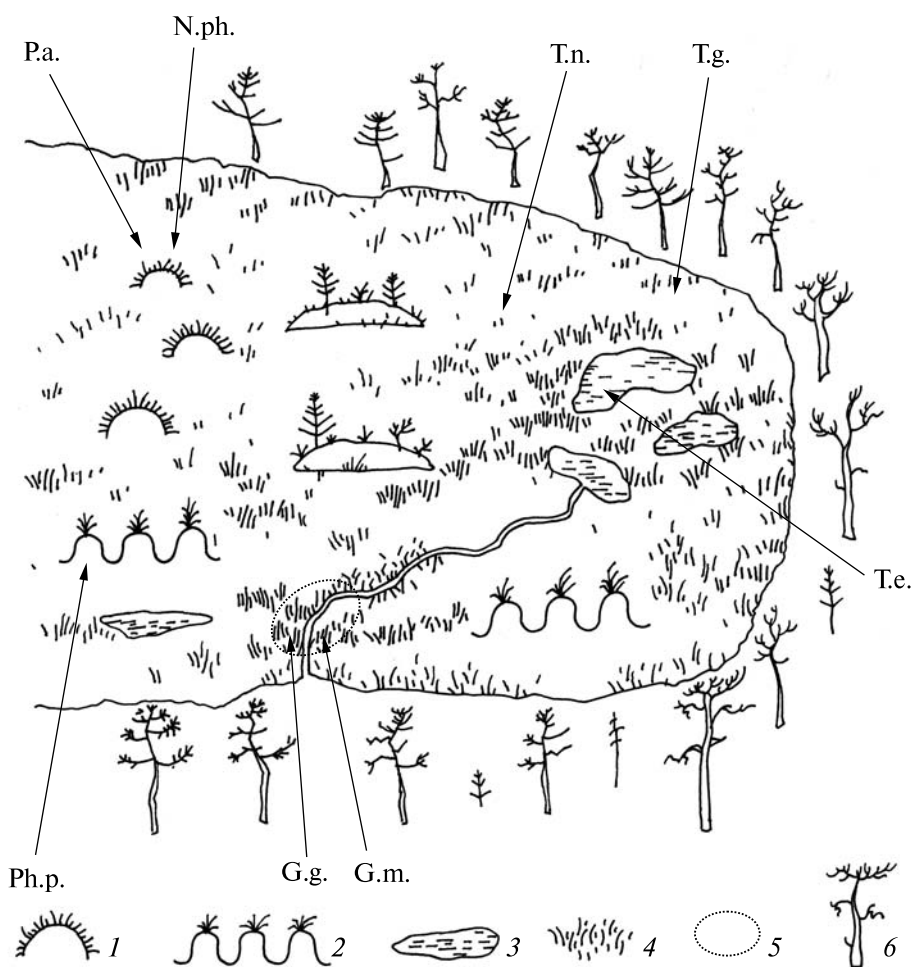 N.ph.
P.a.
T.n.
T.g.
T.e.
Ph.p.
G.g.
G.m.
1
2
3
4
5
6